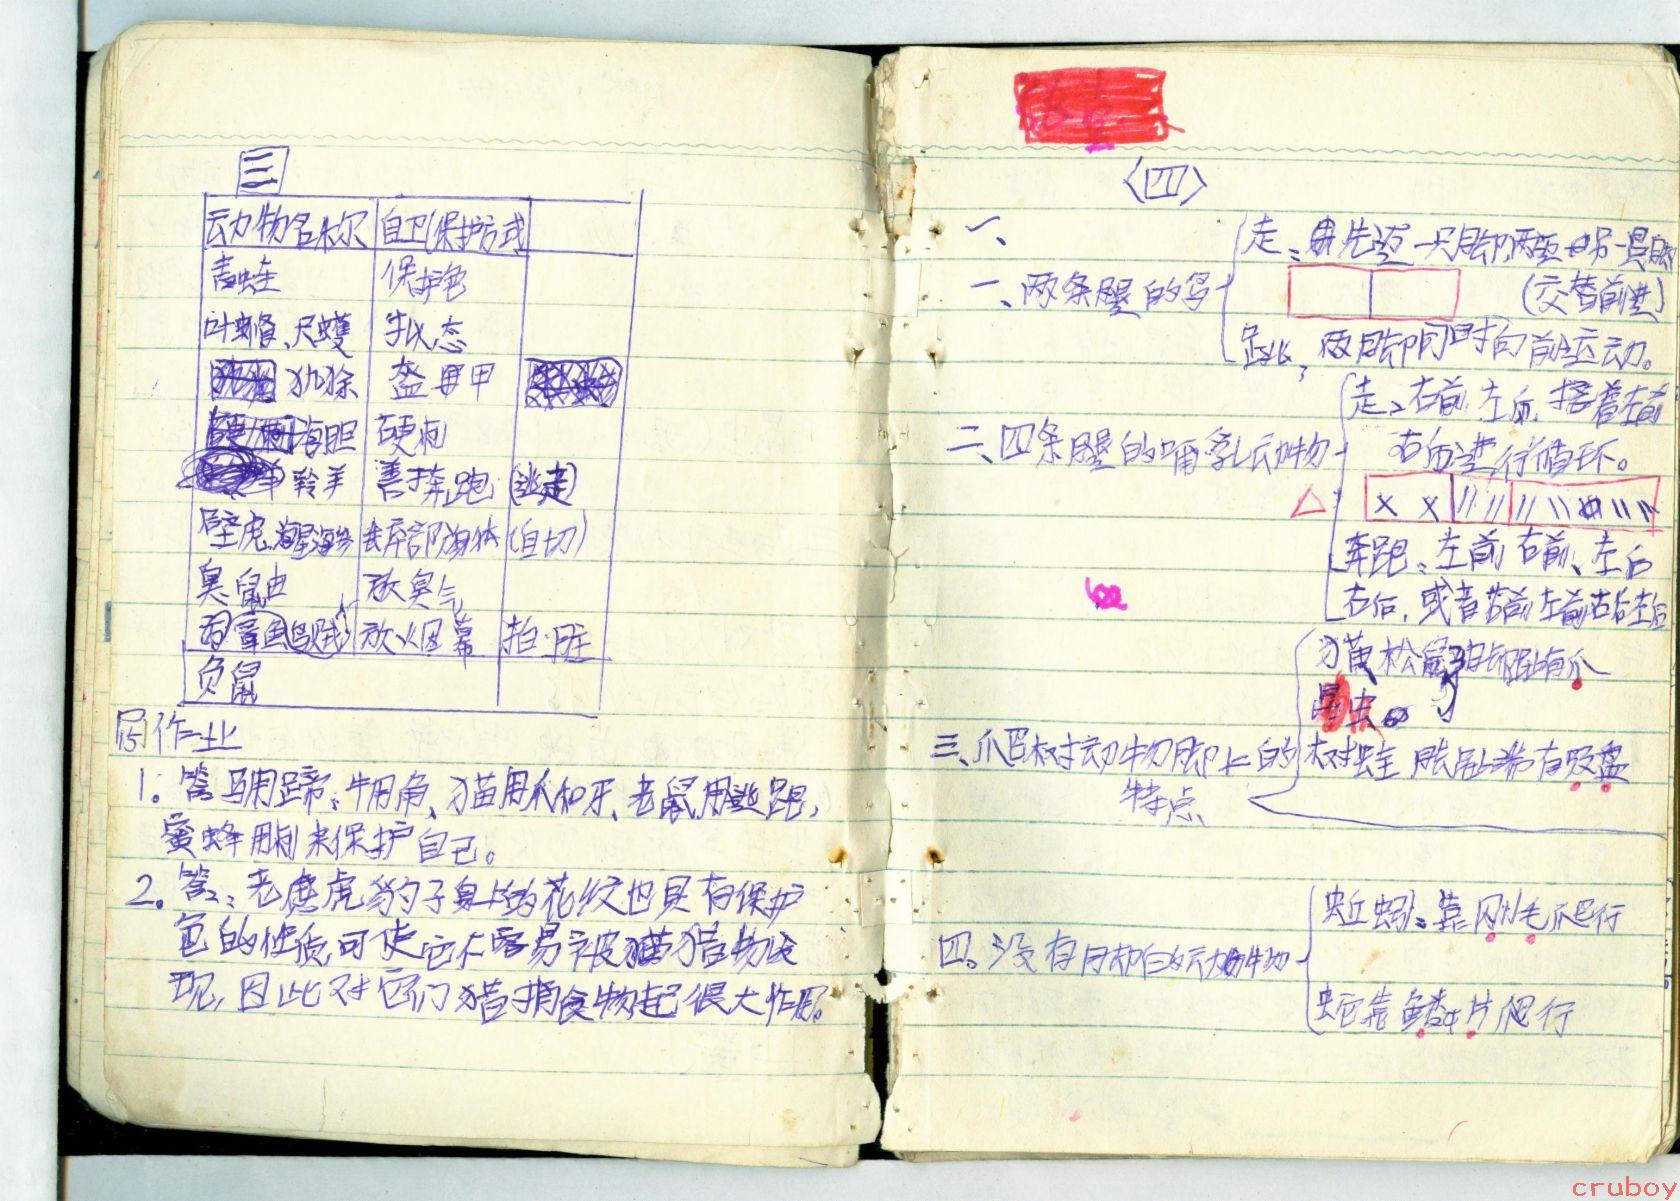 三
动物名称 自卫(保护方式
青蛙 保护色
叶蝉、尺蠖 拟态
犰狳 盔甲
海胆 硬刺
羚羊 善奔跑 (逃走)
壁虎、海星海参 丢弃部分身体 (自切)
臭鼬 放臭气
章鱼乌贼 放烟幕
负鼠
作业
1。答马用蹄、牛用角、猫用爪和牙、老鼠用逃跑,
蜜蜂用刺来保护自己。
2。答:老虎豹子身上的花纹也具有保护
色的性质,可使它不容易被猎物发
现,因此对它们猎捕食物起很大作用。
〈四〉
一、
一、两条腿的鸟
走:先迈一只脚,再迈另一只脚
(交替前进)
跳,两脚同时向前运动。
二、四条腿的哺乳动物
走:右前,左后,接着左前
右后进行循环。
奔跑:左前右前、左后
右后,或者右前左前右后左后
三、爬树动物脚上的
特点
猫松鼠有爪
昆虫
树蛙 脚趾端有吸盘
四。没有脚的动物
蚯蚓:靠刚毛爬行
蛇靠鳞片爬行
cruboy